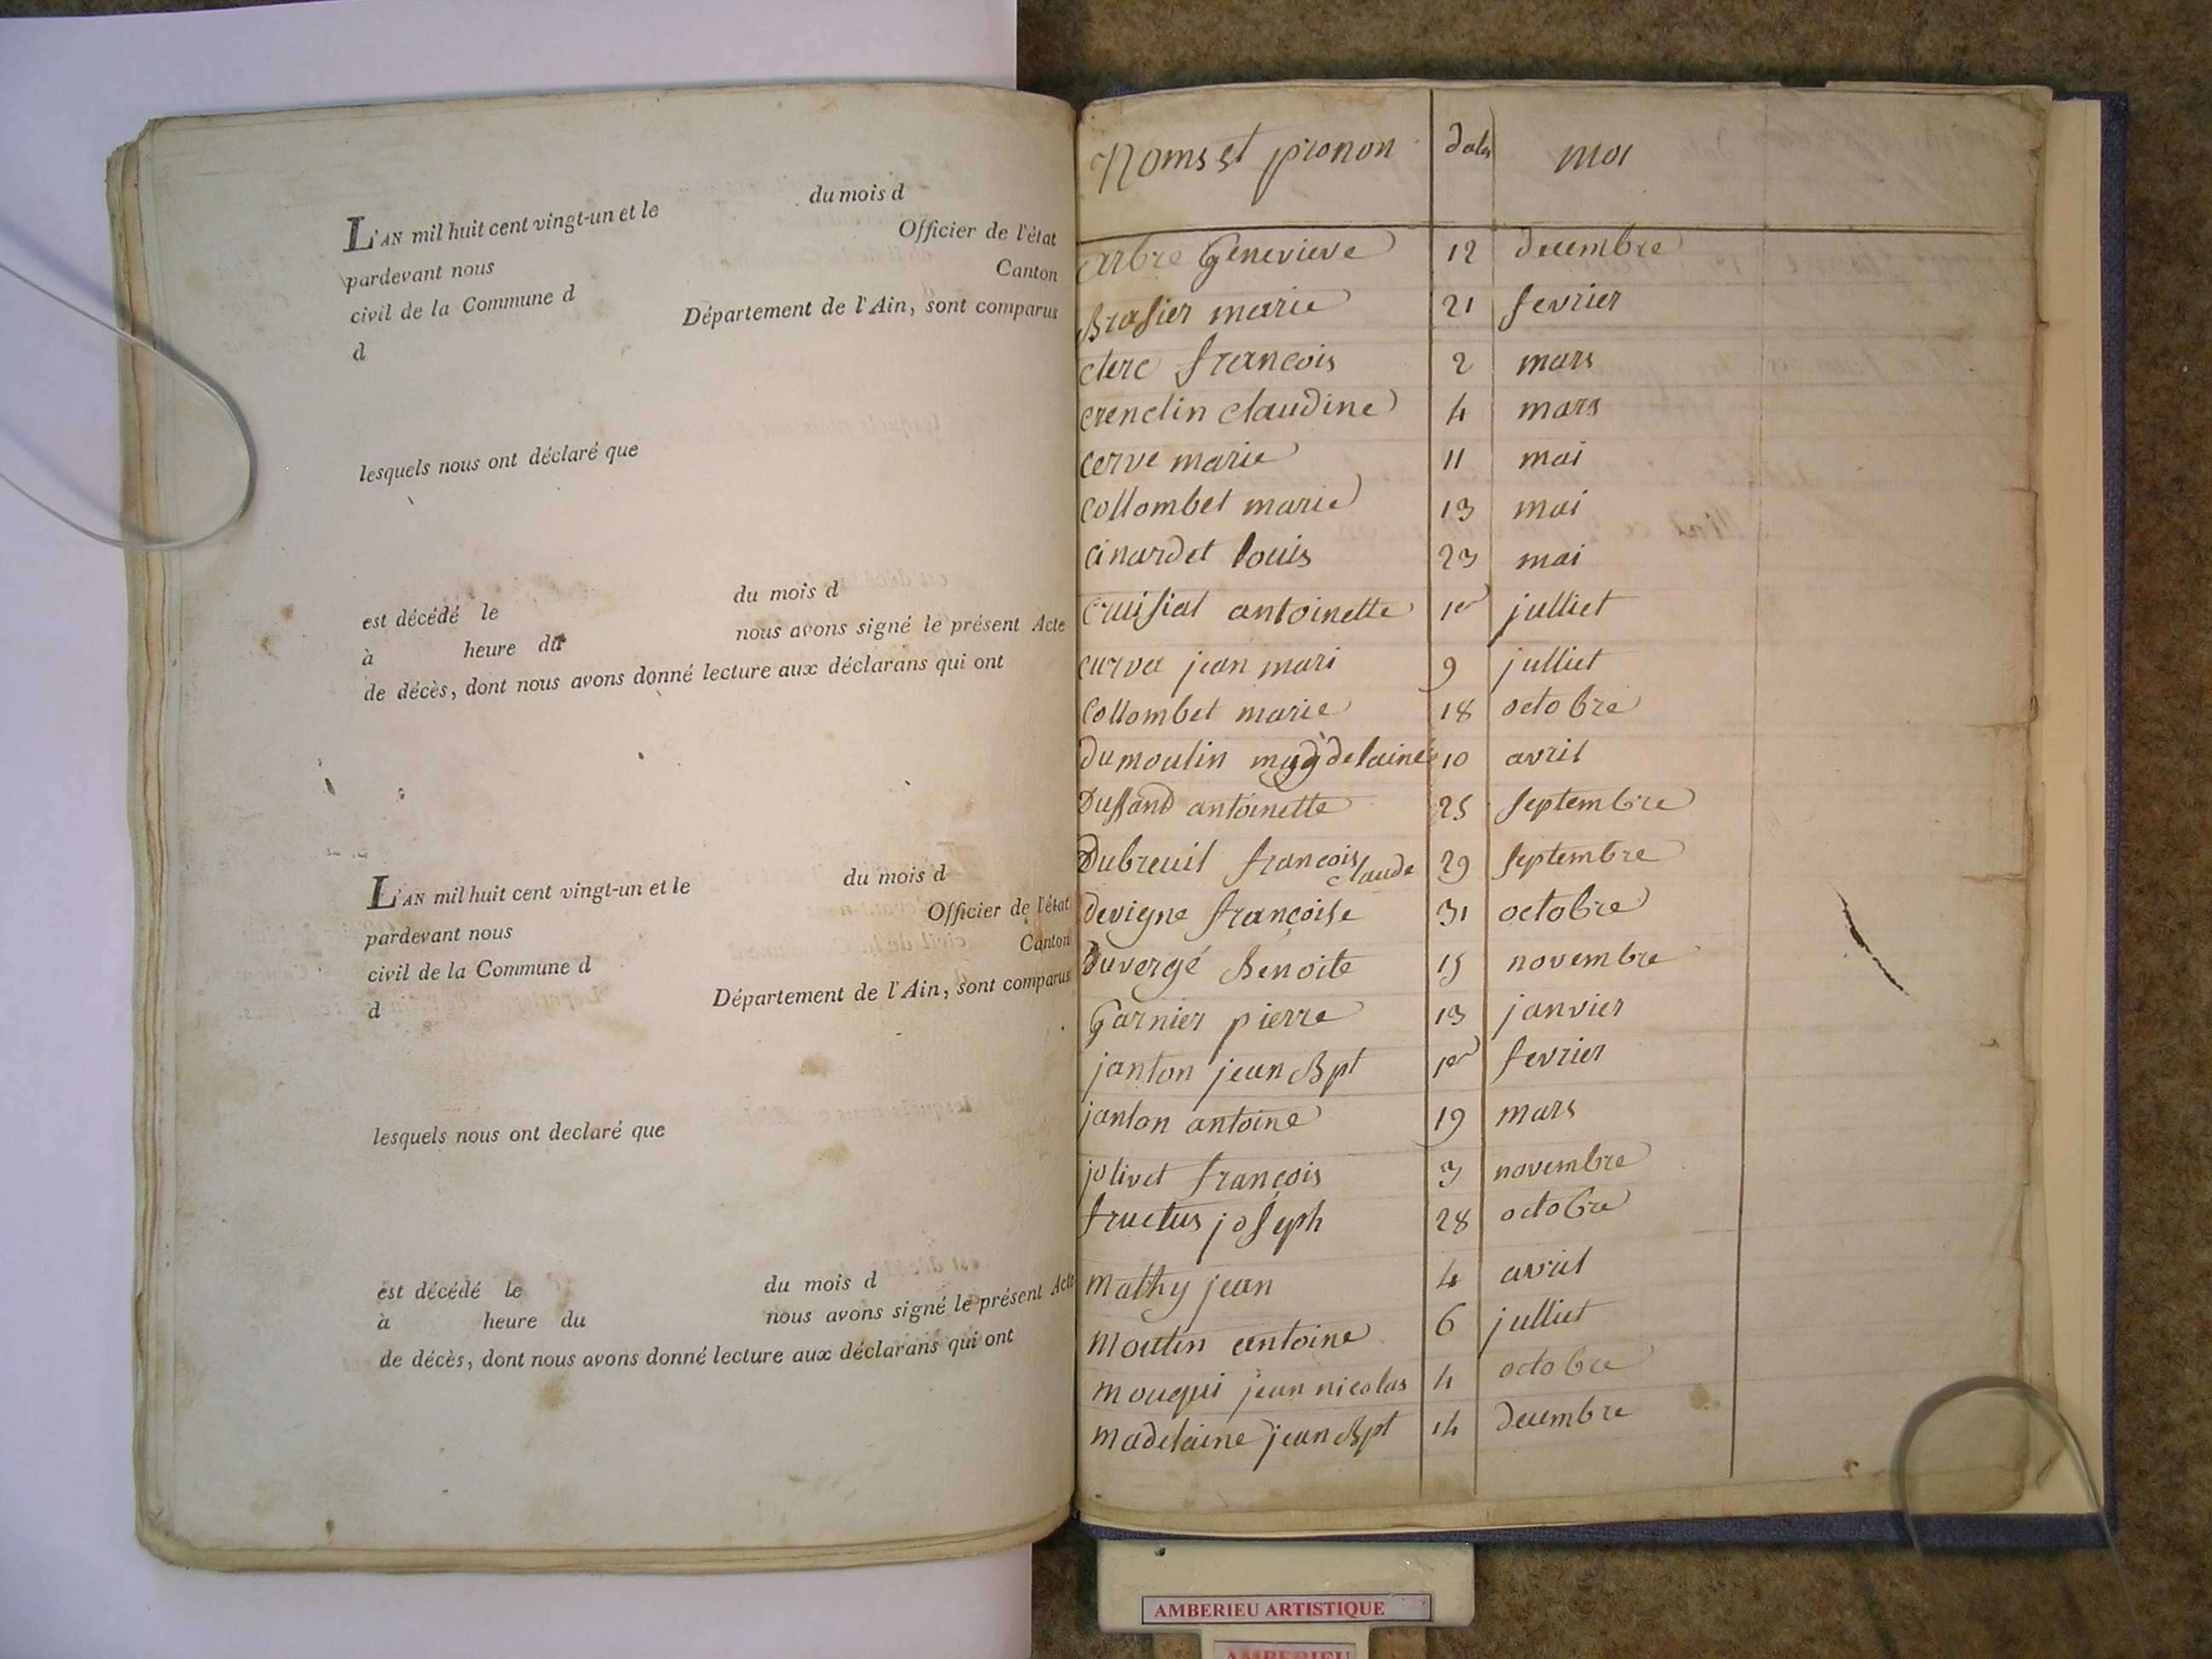 du mois d
L'AN mil huit cent vingt-un et le
Officier de l'état
pardevant nous
Canton
civil de la Commune d
Département de l'Ain, sont comparus
d
lesquels nous ont déclaré que
du mois d
est décédé le
nous avons signé le présent Acte
à heure du
de décès, dont nous avons donné lecture aux déclarans qui ont
du mois d
L'AN mil huit cent vingt-un et le
Officier de l'état
pardevant nous
Canton
civil de la Commune d
Département de l'Ain, sont comparus
d
lesquels nous ont declaré que
est décédé le du mois d
à heure du nous avons signé le présent Acte
de décès, dont nous avons donné lecture aux déclarans qui ont
Noms et pronon dates moi
arbre Genevieve 12 decembre
Brasier marie 21 fevrier
clerc francois 2 mars
crenclin claudine 4 mars
cerve marie 11 mai
collombet marie 13 mai
cinardet louis 23 mai
cruisiat antoinette 1er julliet
curva jean mari 9 julliet
Collombet marie 18 octobre
dumoulin magdelaine 10 avril
Dussand antoinette 25 septembre
Dubreuil francois claude 29 septembre
devigne françoise 31 octobre
Duvergé Benoite 15 novembre
Garnier pierre 13 janvier
janton jean Bpt 1er fevrier
janton antoine 19 mars
jolivet françois 3 novembre
fructus joseph 28 octobre
mathy jean 4 avril
moutin antoine 6 julliet
mouqui jean nicolas 4 octobre
madelaine jean Bpt 14 decembre
AMBERIEU ARTISTIQUE
AMBERIEU